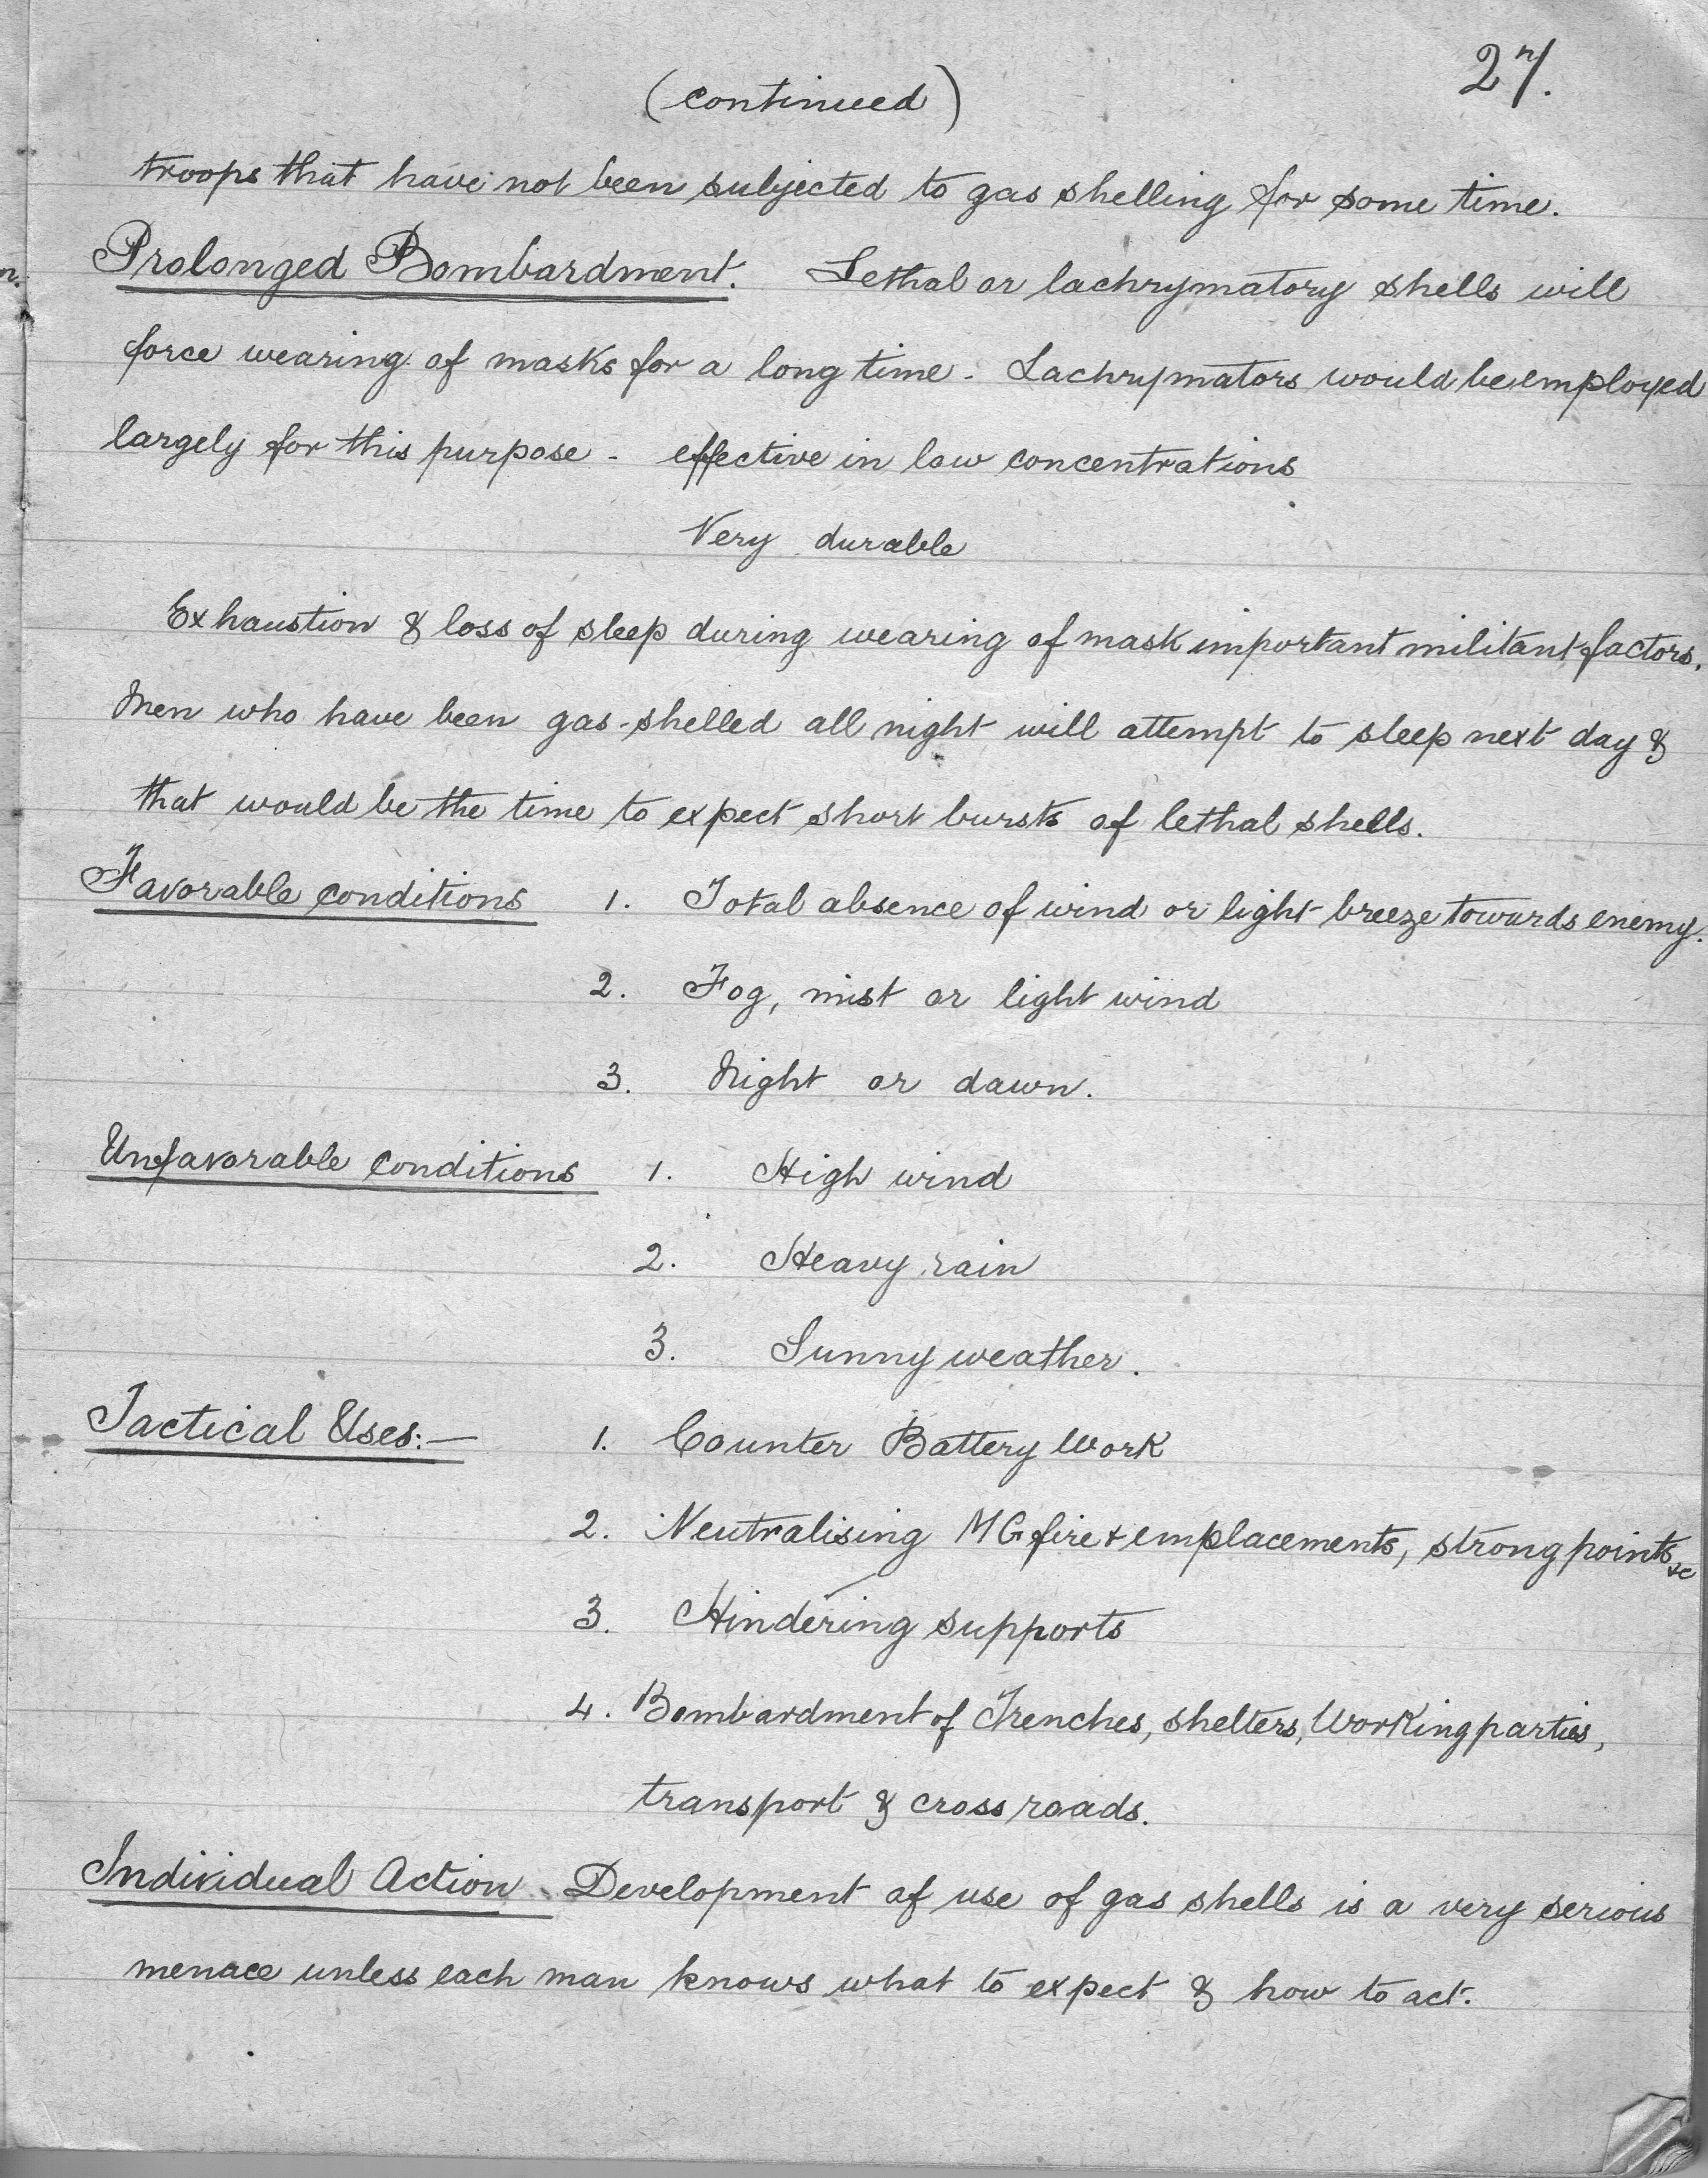 27.
(continued)
troops that have not been subjected to gas shelling for some time.
Prolonged Bombardment. Lethal or lachrymatory shells will
force wearing of masks for a long time - Lachrymators would be employed
largely for this purpose - effective in low concentrations
Very durable
Exhaustion & loss of sleep during wearing of mask important militant factors.
Men who have been gas-shelled all night will attempt to sleep next day &
that would be the time to expect short bursts of lethal shells.
Favorable conditions 1. Total absence of wind or light breeze towards enemy.
2. Fog, mist or light wind
3. Night or dawn.
Unfavorable conditions 1. High wind
2. Heavy rain
3. Sunny weather.
Tactical Uses:— 1. Counter Battery Work
2. Neutralising MG fire & emplacements, strong points &c
3. Hindering supports
4. Bombardment of Trenches, shelters, Working parties,
transport & cross roads.
Individual Action. Development of use of gas shells is a very serious
menace unless each man knows what to expect & how to act.